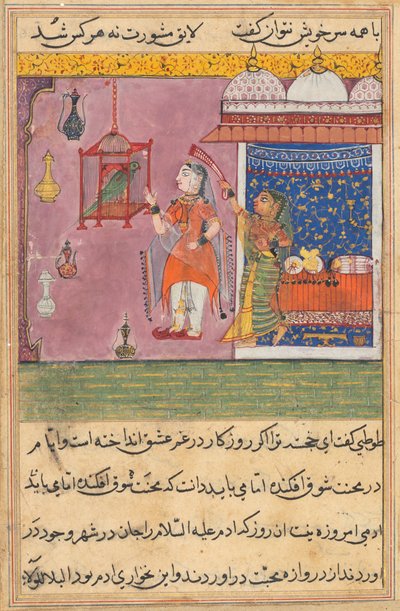 با همه سر خویش نتوان گفت لایق مشورت نه هر کس شد
طوطی گفت ای خجسته ترا اگر روزکار در غم عشق انداخته است و ایام
در محنت شوق افکنده اما می باید دانست که محنت شوق افکنده اما می باید
ادمی امروزه نیست ان روز که ادم علیه السلام را جان در شهر وجود در
اوردند از دروازه محبت در اوردند و این نخواری ادم بود البلا للولا